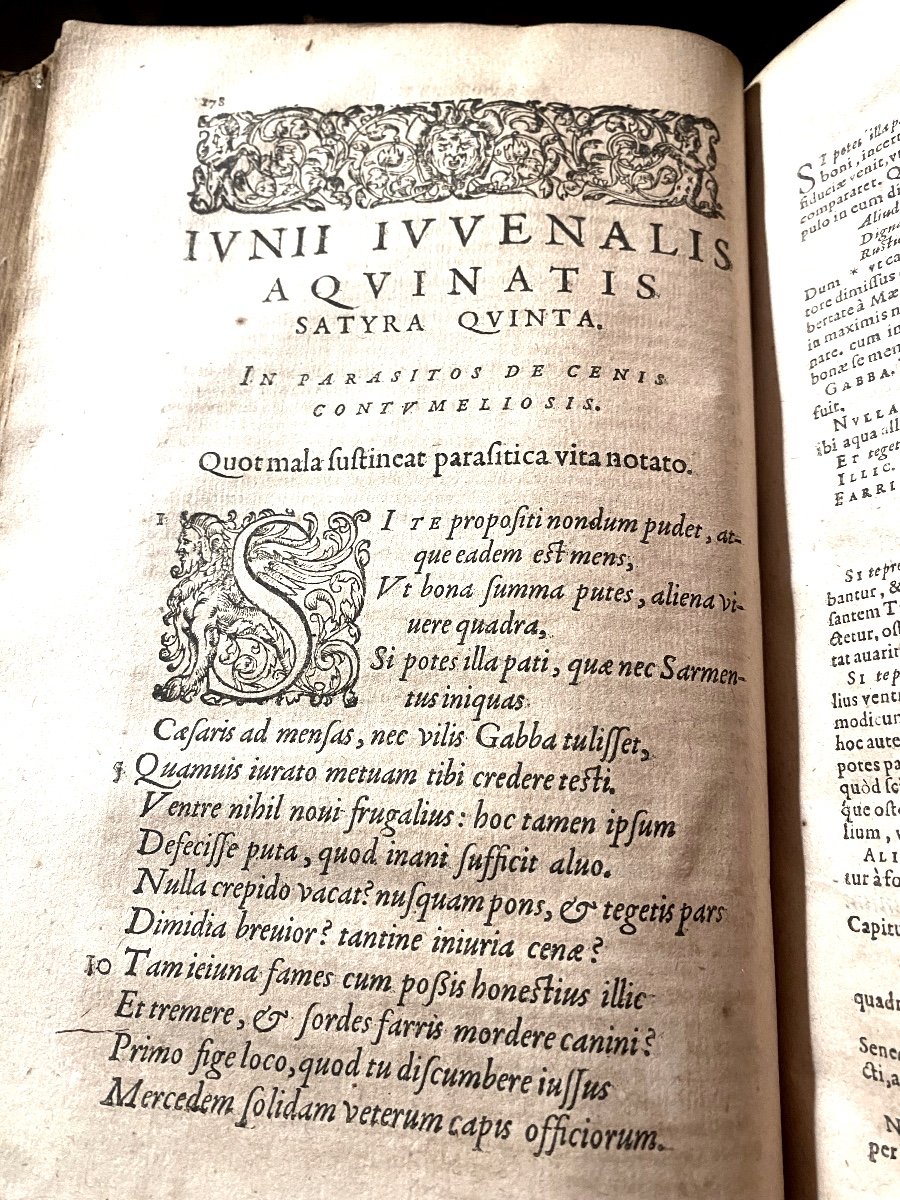 278
IVNII IVVENALIS
AQVINATIS
SATYRA QVINTA.
IN PARASITOS DE CENIS
CONTVMELIOSIS.
Quot mala ſuſtineat paraſitica vita notato.
1 SI TE propoſiti nondum pudet, at-
que eadem eſt mens,
Vt bona ſumma putes, aliena vi-
uere quadra,
Si potes illa pati, quæ nec Sarmen-
tus iniquas
Cæſaris ad menſas, nec vilis Gabba tuliſſet,
5 Quamuis iurato metuam tibi credere teſti.
Ventre nihil noui frugalius: hoc tamen ipſum
Defeciſſe puta, quod inani ſufficit aluo.
Nulla crepido vacat? nuſquam pons, & tegetis pars
Dimidia breuior? tantine iniuria cenæ?
10 Tam ieiuna fames cum poſsis honeſtius illic
Et tremere, & ſordes farris mordere canini?
Primo fige loco, quod tu diſcumbere iuſſus
Mercedem ſolidam veterum capis officiorum.
SI potes illa p
boni, incert
fiduciæ venit, v
comparare
pulo in eum di
Aliud
Dign
Ruſtu
Dum * vt ca
tore dimiſſus
bertate à Mæ
in maximis n
nare. cum in
bonæ ſe men
GABBA.
fuit.
NVLLA
ibi aqua all
Et teget
ILLIC.
FARRI
SI te pro
bantur, &
ſantem T
ctetur, oſt
tat auarit
SI te p
lius ventr
modicum
hoc aute
potes pa
quòd ſci
que oſte
lium, v
ALI
tur à fo
Capitu
quadr
Sene
cti, a
N
per